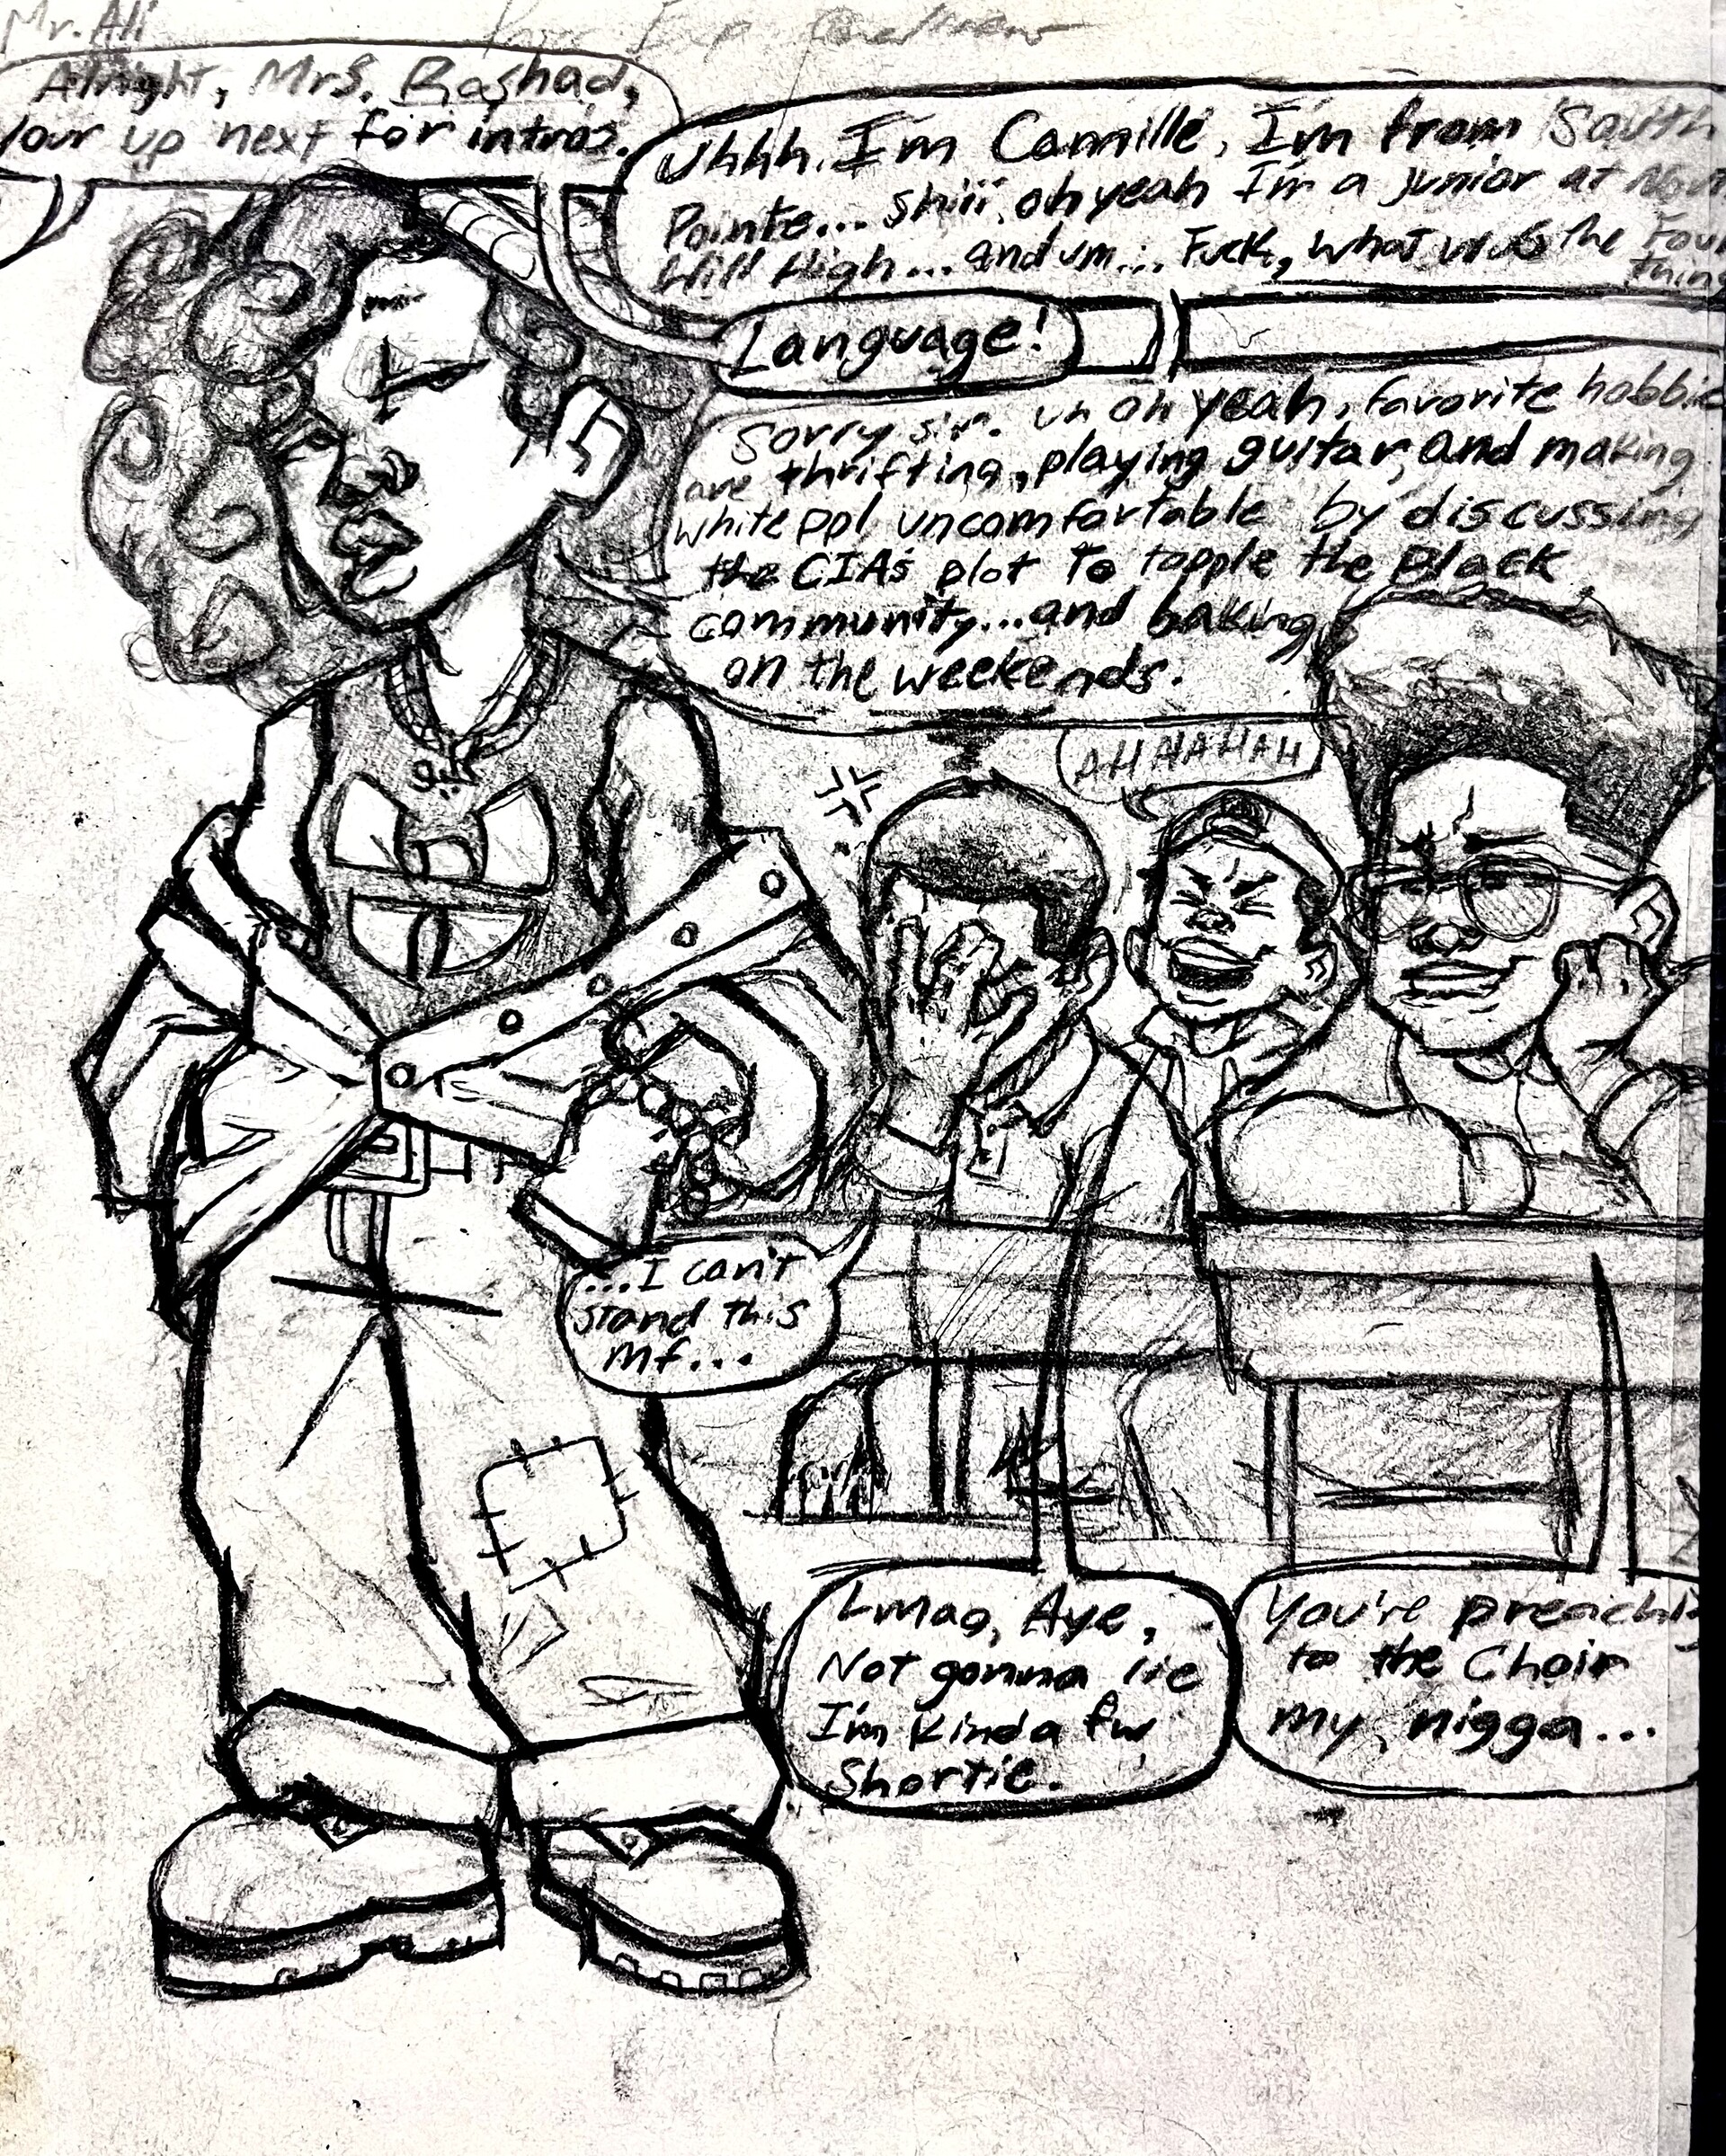 Mr. Ali
Alright, Mrs. Rashad,
Your up next for intros.
Uhhh. I'm Camille, I'm from South
Pointe... shiii oh yeah I'm a junior at
Hill High... and um... Fuck, what was the
Language!
Sorry sir. uh oh yeah, favorite
are thrifting, playing guitar, and making
white ppl uncomfortable by discussing
the CIAs plot to topple the Black
community... and baking
on the weekends.
AHHAHAH
...I can't
stand this
mf...
Lmao, Aye,
Not gonna lie
I'm kinda fw
Shortie.
You're
to the Choir
my nigga...